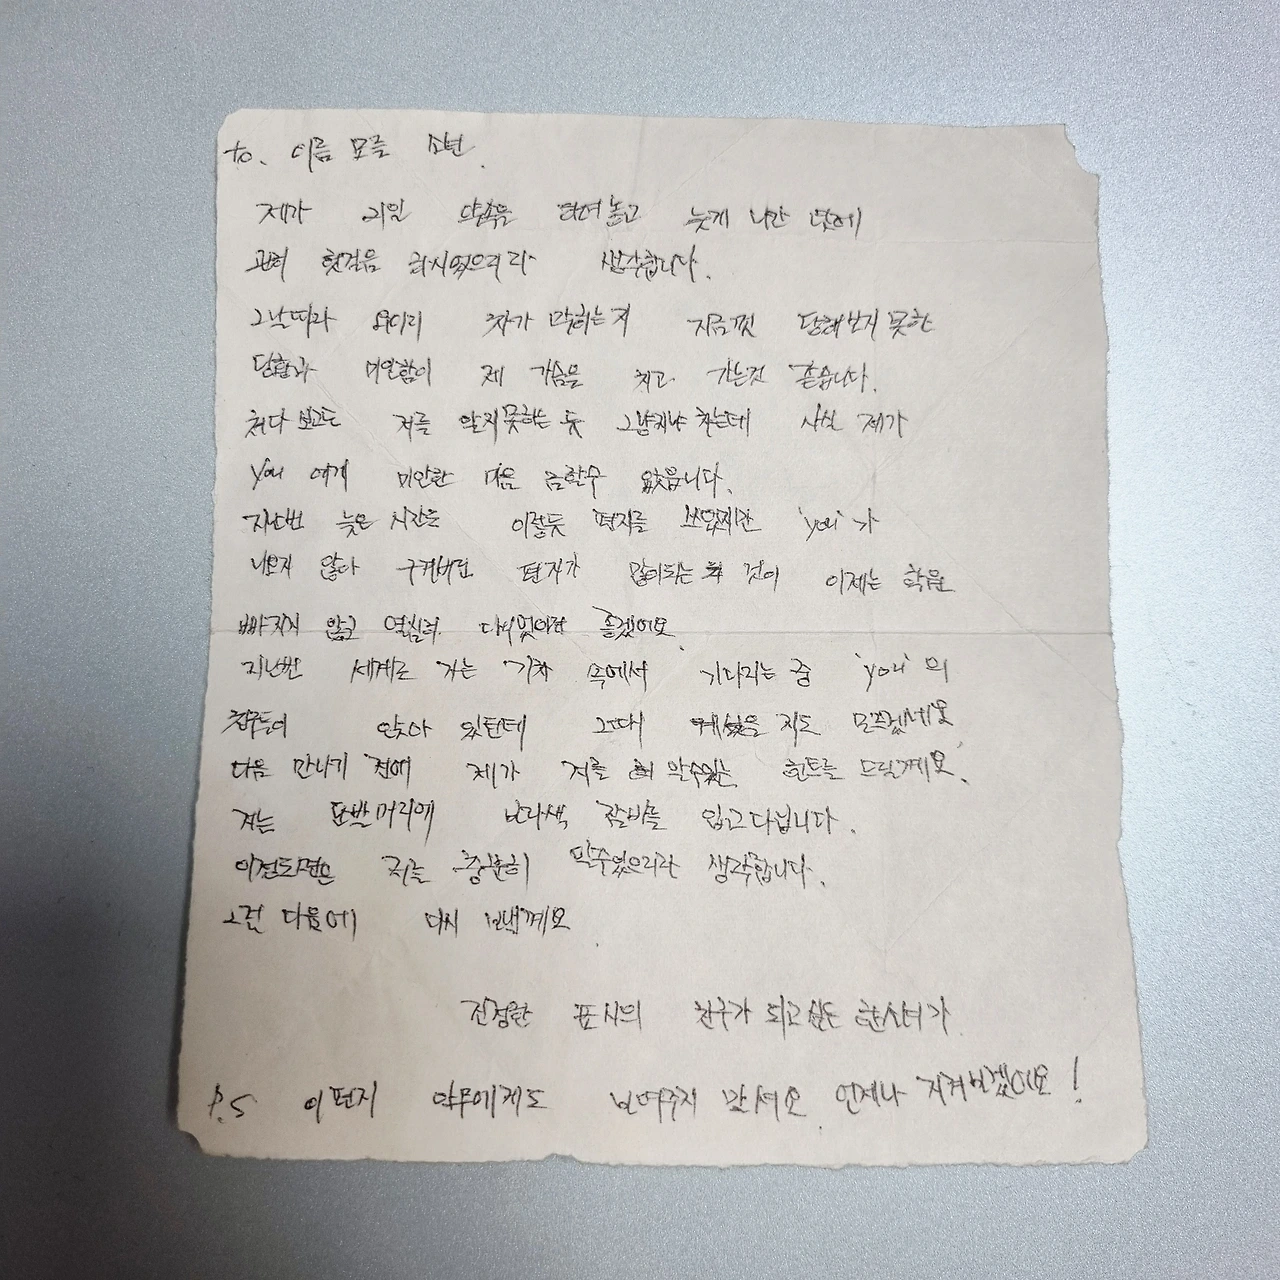 to. 이름 모를 소년.
제가 21일 약속을 하여 놓고 늦게 나간 탓에
괜히 헛걸음 하시었으리라 생각합니다.
그날따라 요리 차가 막히는지 지금껏 당해보지 못한
당황과 미안함이 제 가슴을 치고 가는것 같습니다.
쳐다 보고도 저를 알지못하는 듯 그냥지나 치는데 사실 제가
you 에게 미안한 마음 금할수 없읍니다.
지난번 늦은 시간을 이렇듯 편지를 쓰었지만 'you'가
나오지 않아 구겨버린 편지가 많이되는 것이 이제는 학원
빠지지 않고 열심히 다니었으면 좋겠어요.
지난번 세계로 가는 기차 속에서 기다리는 중 'you'의
친구들이 앉아 있던데 그때 계셨을 지도 모르겠네요.
다음 만나기 전에 제가 저를 알수있는 힌트를 드릴께요.
저는 단발머리에 보라색 잠바를 입고 다닙니다.
이정도면은 저를 충분히 알수있으리라 생각합니다.
그럼 다음에 다시 보낼께요.
진정한 표시의 친구가 되고 싶은 한소녀가
P.S 이편지 아무에게도 보여주지 마셔요. 언제나 지켜보겠어요!